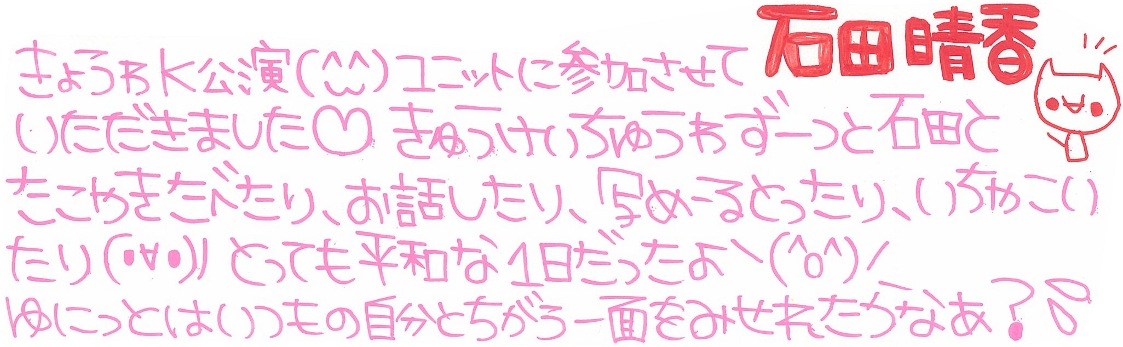 石田晴香
きょうわK公演(^ω^)ユニットに参加させて
いただきました♡ きゅうけいちゅうわずーっと石田と
たこやきたべたり、お話したり、写めーるとったり、いちゃこい
たり(•∀•)) とっても平和な1日だったよヽ(^o^)ノ
ゆにっとはいつもの自分とちがう一面をみせれたかなあ?